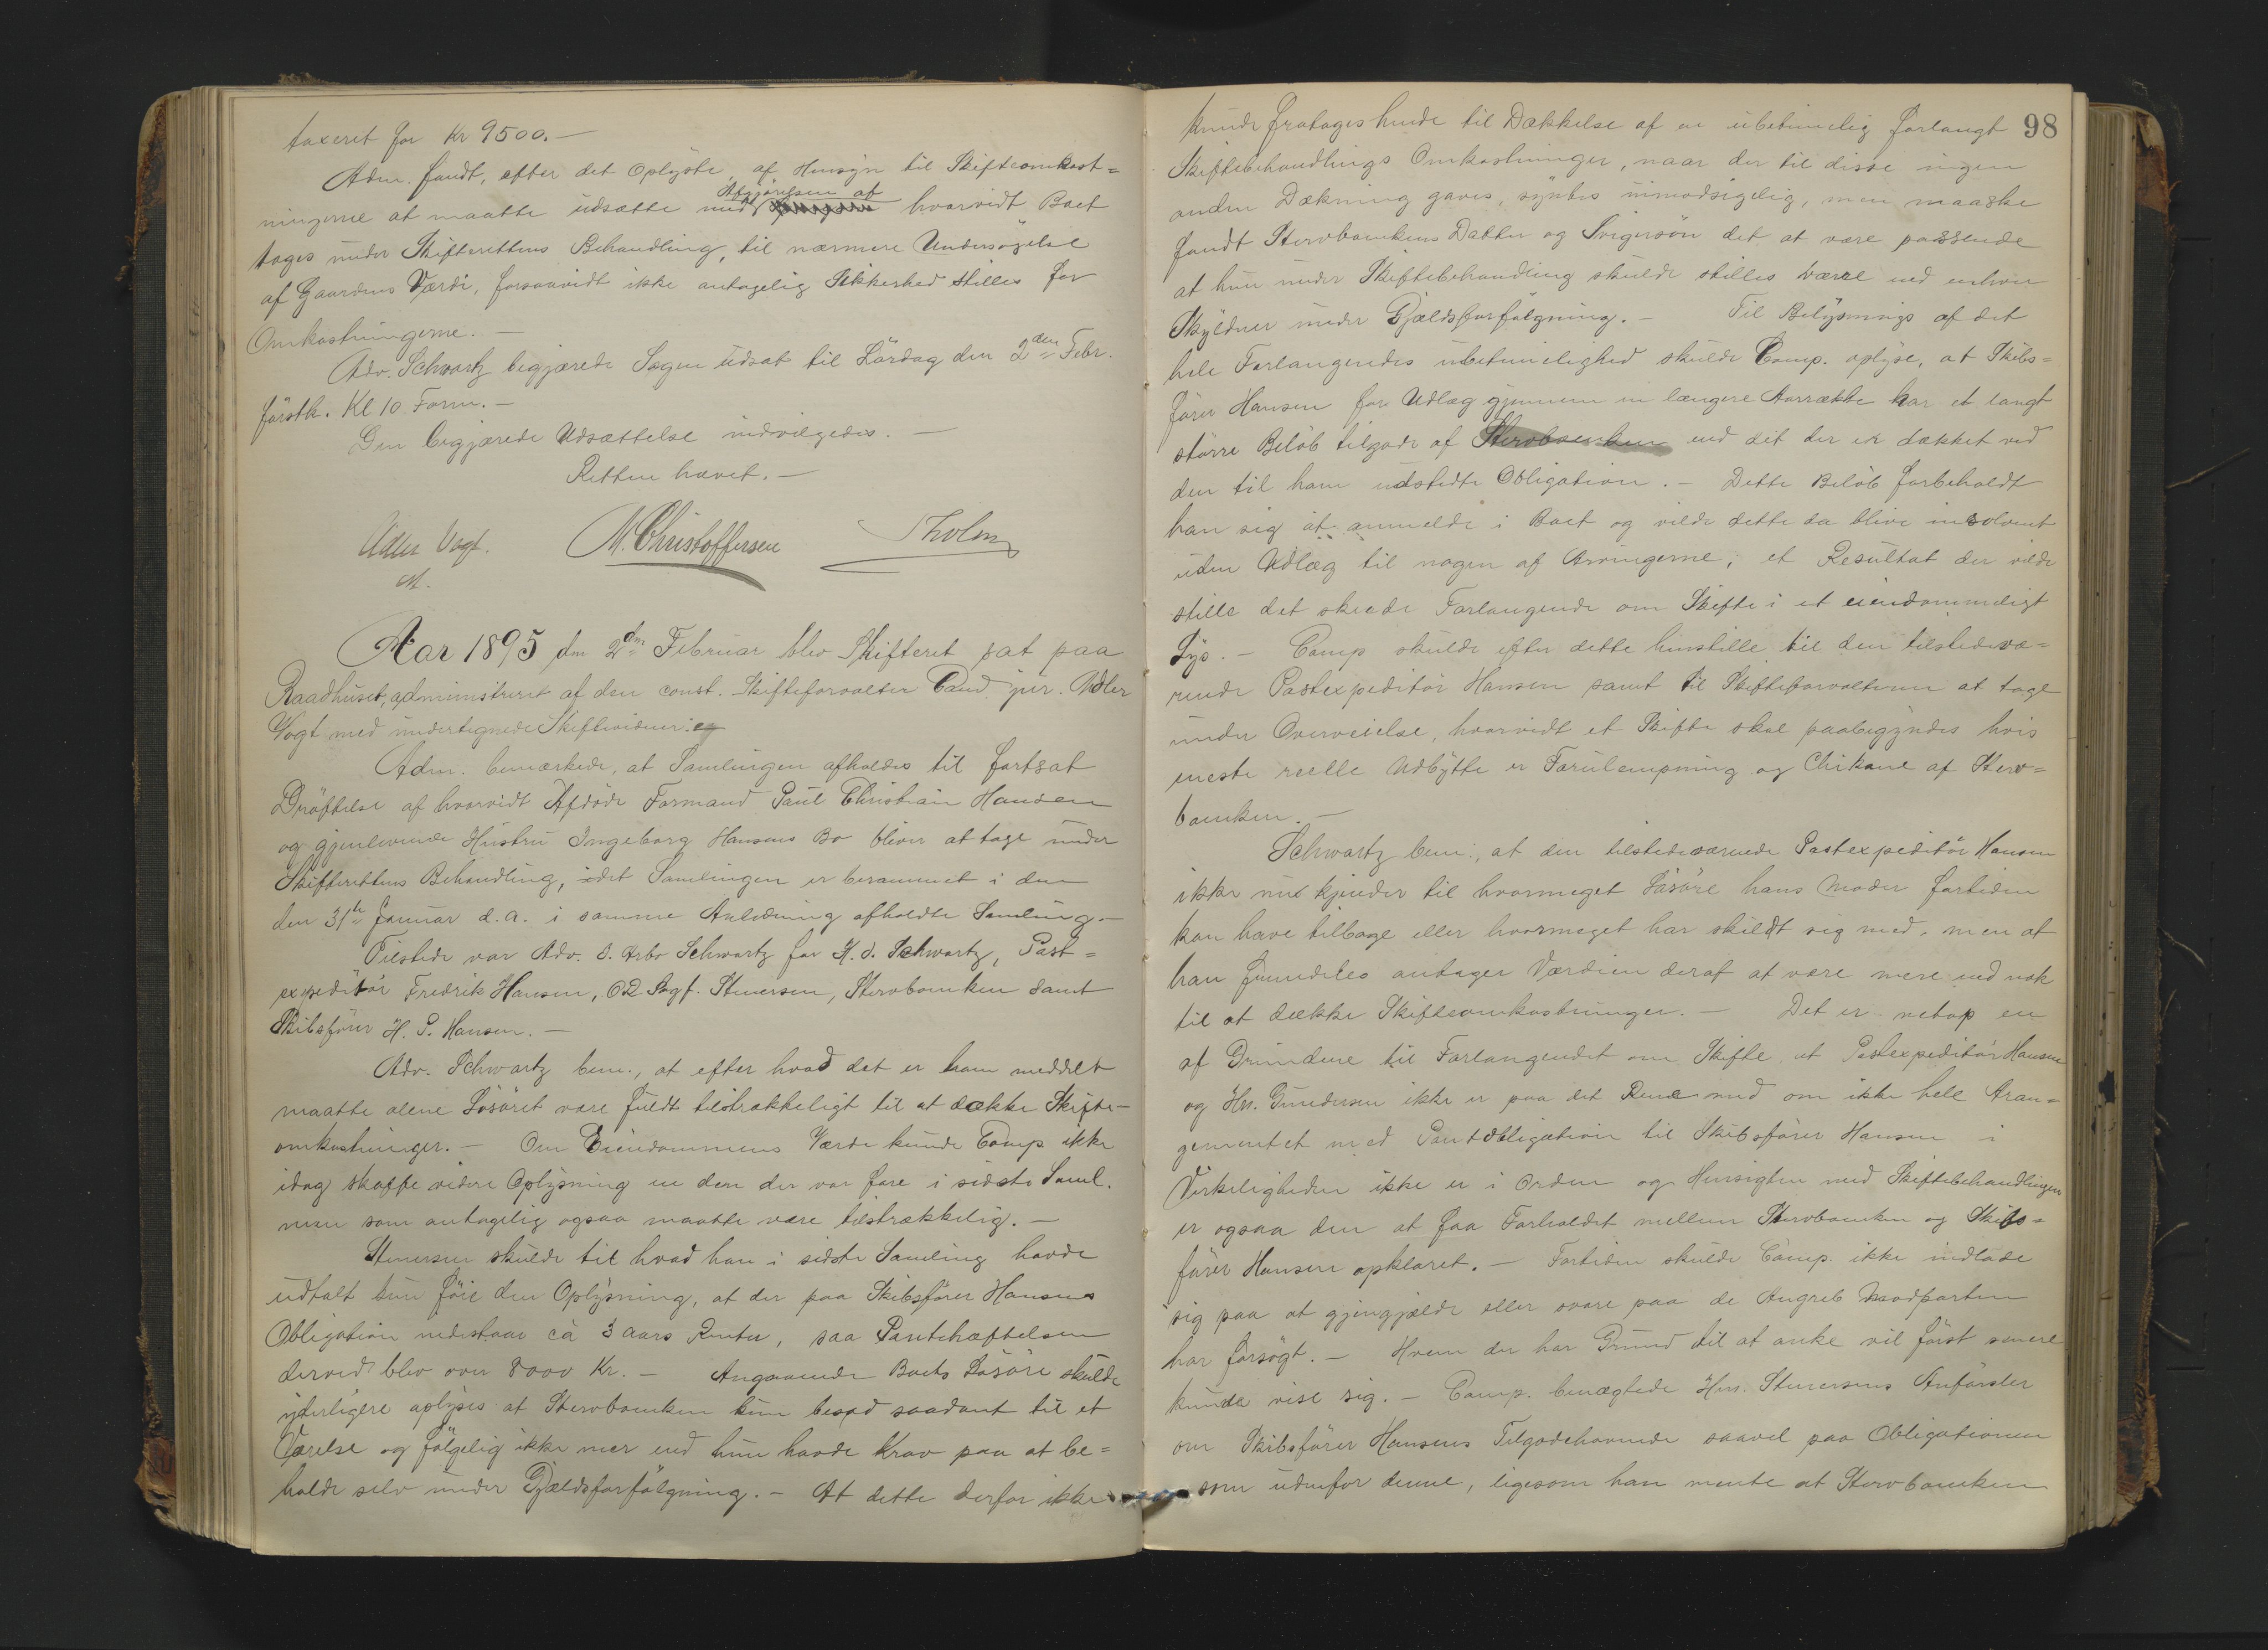 taxeret for Kr 9500.—
Adm. fandt, efter det oplyste, af Hensyn til Skifteomkost=
ningerne at maatte udsætte med Afgjørelsen af hvorvidt Boet
tages under Skifterettens Behandling, til nærmere Undersøgelse
af Gaardens Værdi, forsaavidt ikke antagelig Sikkerhed stilles for
Omkostningerne.—
Adv. Schwartz begjærede Sagen udsat til Lørdag den 2den Febr.
førstk. Kl 10 Form.—
Den begjærede Udsættelse indvilgedes.—
Retten hævet.—
Adler Vogt. M. Christoffersen Tholm
Aar 1895 den 2den Februar blev Skifteret sat paa
Raadhuset, administreret af den const. Skifteforvalter Cand. jur. Adler
Vogt med undertegnede Skiftevidner.
Adm. bemærkede, at Samlingen afholdes til fortsat
Drøftelse af hvorvidt Afdøde Formand Paul Christian Hansen
og gjenlevende Hustru Ingeborg Hansens Bo bliver at tage under
Skifterettens Behandling, idet Samlingen er berammet i den
den 31te Januar d.a. i samme Anledning afholdte Samling.—
Tilstede var Adv. D. Arbo Schwartz for H. D. Schwartz, Post=
expeditør Fredrik Hansen, OR Sagf. Stenersen, Stervboenken samt
Skibsfører H. P. Hansen.—
Adv. Schwartz bem., at efter hvad det er ham meddelt
maatte alene Løsøret være fuldt tilstrækkeligt til at dække Skifte-
omkostninger.— Om Eiendommens Værdi kunde Comp. ikke
idag skaffe videre Oplysning en den der var fore i sidste Saml.
men som antagelig ogsaa maatte være tilstrækkelig.—
Stenersen skulde til hvad han i sidste Samling havde
udtalt kun føie den Oplysning, at der paa Skibsfører Hansens
Obligation nedestaar cà 3 Aars Renter, saa Pantehæftelsen
derved blev over 8000 Kr.— Angaaende Boets Løsøre skulde
yderligere oplyses at Stervboenken kun besad saadant til et
Værelse og følgelig ikke mer end hun havde Krav paa at be=
holde selv under Gjældsforfølgning.— At dette derfor ikke
98
kunde fratages hende til Dækkelse af en ubetimelig forlangt
Skiftebehandlings Omkostninger, naar der til disse ingen
anden Dækning gaves, syntes uimodsigelig, men maaske
fandt Stervboenkens Datter og Svigersøn det at være passende
at hun under Skiftebehandling skulde stilles værre end enhver
Skyldner under Gjældsforfølgning.— Til Belysnings af det
hele Forlangendes ubetimelighed skulde Comp. oplyse, at Skibs=
fører Hansen for Udlæg gjennem en længere Aarrække har et langt
større Beløb tilgode af Stervboenken end det der er dækket ved
den til ham udstedte Obligation.— Dette Beløb forbeholdt
han sig at anmelde i Boet og vilde dette da blive insolvent
uden Udlæg til nogen af Arvingerne, et Resultat der vilde
stille det skeede Forlangende om Skifte i et eiendommeligt
Lys.— Comp skulde efter dette henstille til den tilstedevæ=
rende Postexpeditør Hansen samt til Skifteforvalteren at tage
under Overveielse, hvorvidt et Skifte skal paabegyndes hvis
eneste reelle Udbytte er Forulempning og Chikane af Sterv=
boenken.—
Schwartz bem., at den tilstedeværende Postexpeditør Hansen
ikke nu kjender til hvormeget Løsøre hans Moder fortiden
kan have tilbage eller hvormeget har skildt sig med, men at
han fremdeles antager Værdien deraf at være mere end nok
til at dække Skifteomkostninger.— Det er netop en
af Grundene til Forlangendet om Skifte, at Postexpeditør Hansen
og Hr. Gundersen ikke er paa det Rene med om ikke hele Aran=
gementet med Pantobligation til Skibsfører Hansen i
Virkeligheden ikke er i Orden og Hensigten med Skiftebehandlingen
er ogsaa den at faa Forholdet mellem Stervboenken og Skibs=
fører Hansen opklaret.— Fortiden skulde Comp. ikke indlade
sig paa at gjengjælde eller svare paa de Angreb Modparten
har forsøgt.— Hvem der har Grund til at anke vil først senere
kunde vise sig.— Comp. benægtede Hr. Stenersens Anførsler
om Skibsfører Hansens Tilgodehavende saavel paa Obligationen
som udenfor denne, ligesom han mente at Stervboenken